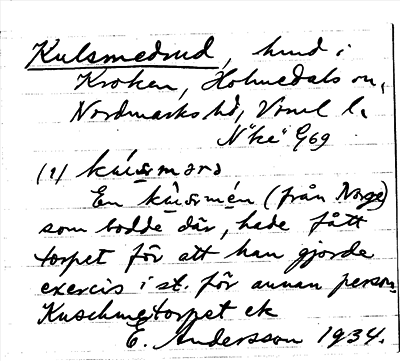 Kulsmedrud, hmd i
Kroken, Holmedals sn,
Nordmarks hd, Vrml l.
N"ke" G69
(1)
En (från Norge)
som bodde där, hade fått
torpet för att han gjorde
exercis i st. för annan person.
Kuschmetorpet ek
E. Andersson 1934.